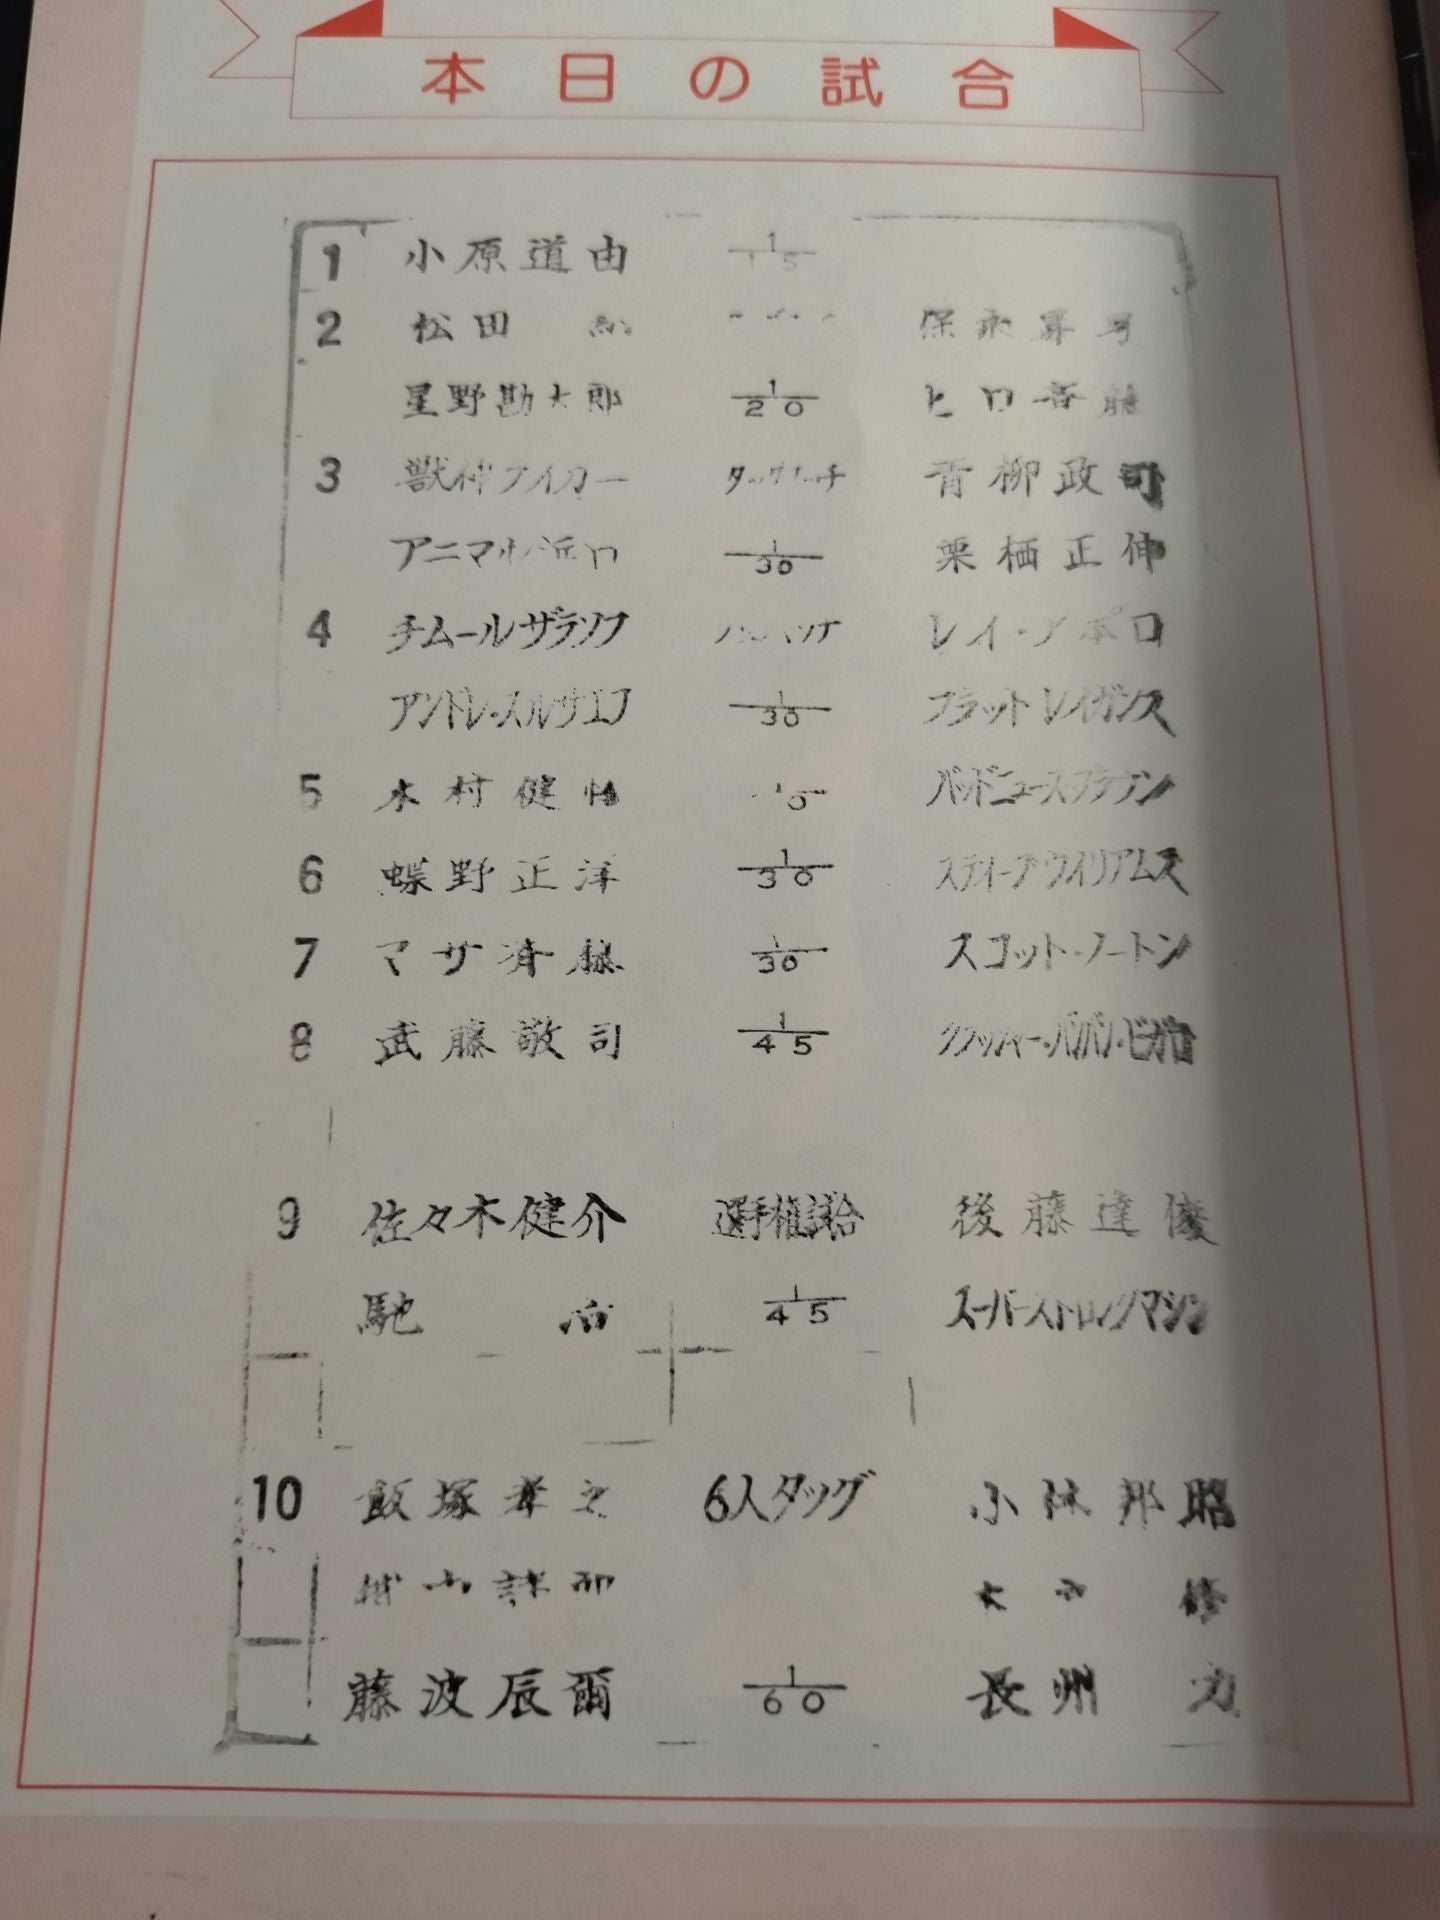 本日の試合
1 小原道由 1/15
2 松田 保永昇男
星野勘太郎 1/20 ヒロ斎藤
3 獣神ライガー タッグマッチ 青柳政司
アニマル浜口 1/30 栗栖正伸
4 チムール・ザラソフ レイ・アポロ
アンドレ・スルサエフ 1/30 ブラット・レイガンス
5 木村健悟 バッドニュース・ブラウン
6 蝶野正洋 1/30 スティーブ・ウイリアムス
7 マサ斉藤 1/30 スコット・ノートン
8 武藤敬司 1/45 クラッシャー・バンバン・ビガロ
9 佐々木健介 選手権試合 後藤達俊
馳 浩 1/45 スーパーストロングマシン
10 飯塚孝之 6人タッグ 小林邦昭
修
藤波辰爾 1/60 長州 力